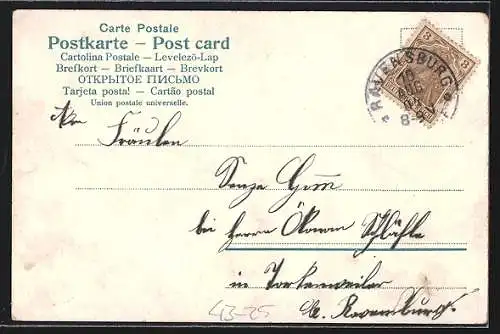 Carte Postale
Postkarte – Post card
Cartolina Postale – Levelező-Lap
Brefkort – Briefkaart – Brevkort
ОТКРЫТОЕ ПИСЬМО
Tarjeta postal – Cartão postal
Union postale universelle.
3 3
RAVENSBURG
10
AUG
An
Fräulen
bei Herrn Ökonom Schäfle
in Torkenweiler
b. Ravensburg.
43-25